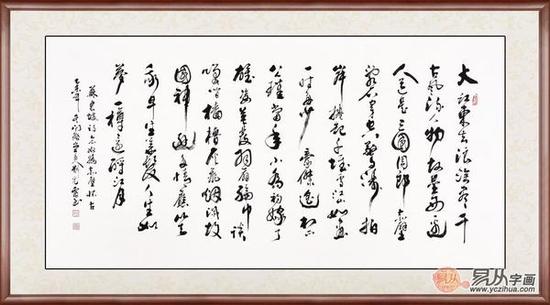 大江東去浪淘盡千
古風流人物故壘西邊
人道是三國周郎赤壁
亂石穿空驚濤拍
岸捲起千堆雪江山如畫
一時多少豪傑遙想
公瑾當年小喬初嫁了
雄姿英發羽扇綸巾談
笑間檣櫓灰飛煙滅故
國神遊多情應笑
我早生華髮人生如
夢一樽還酹江月
蘇東坡詞念奴嬌赤壁懷古
易从字画
www.yczihua.com